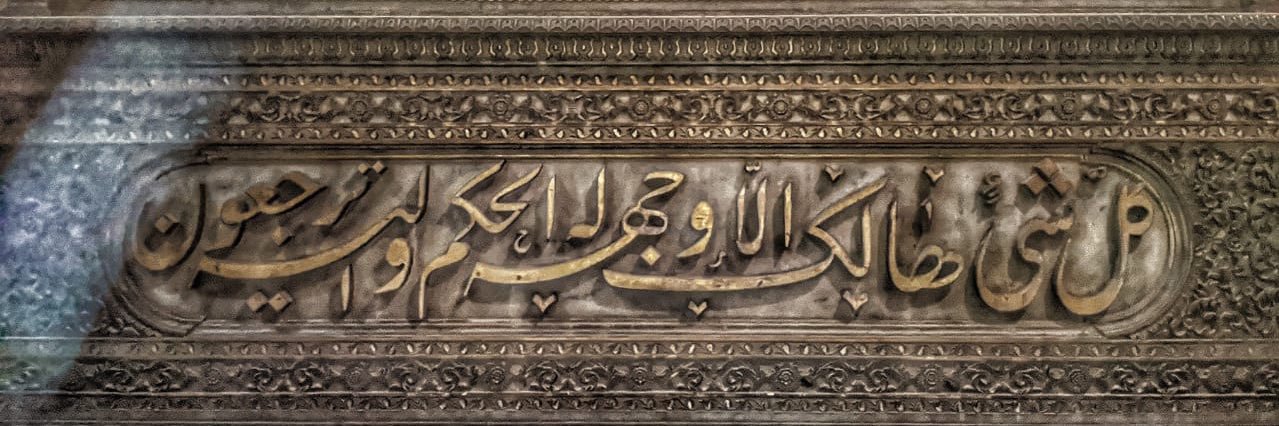 كلّ شئ هالك الّا وجهه له الحكم واليه ترجعون